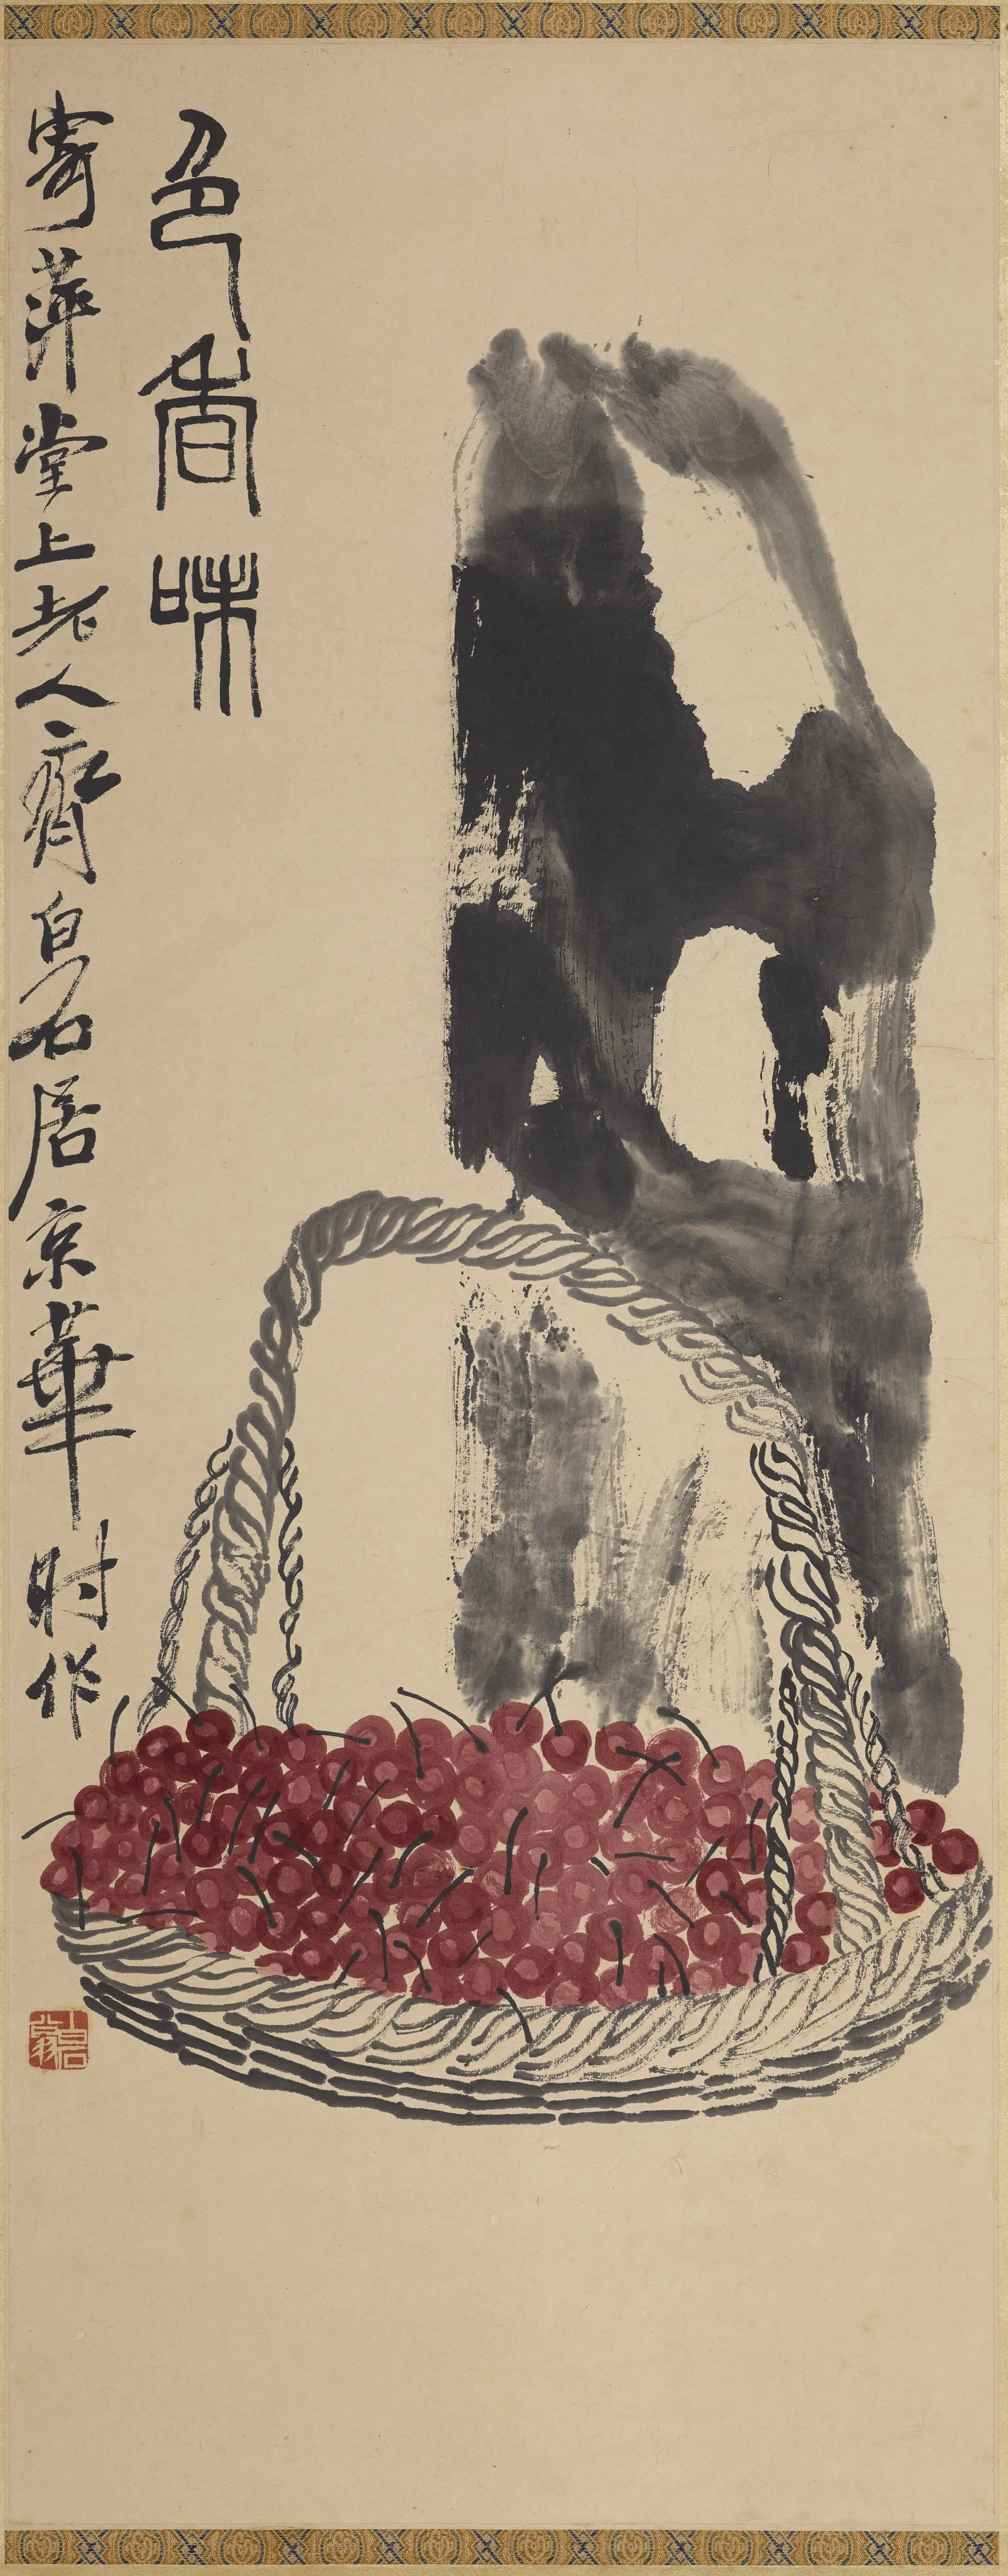 色香味
寄萍堂上老人齊白石居京華時作
白石翁